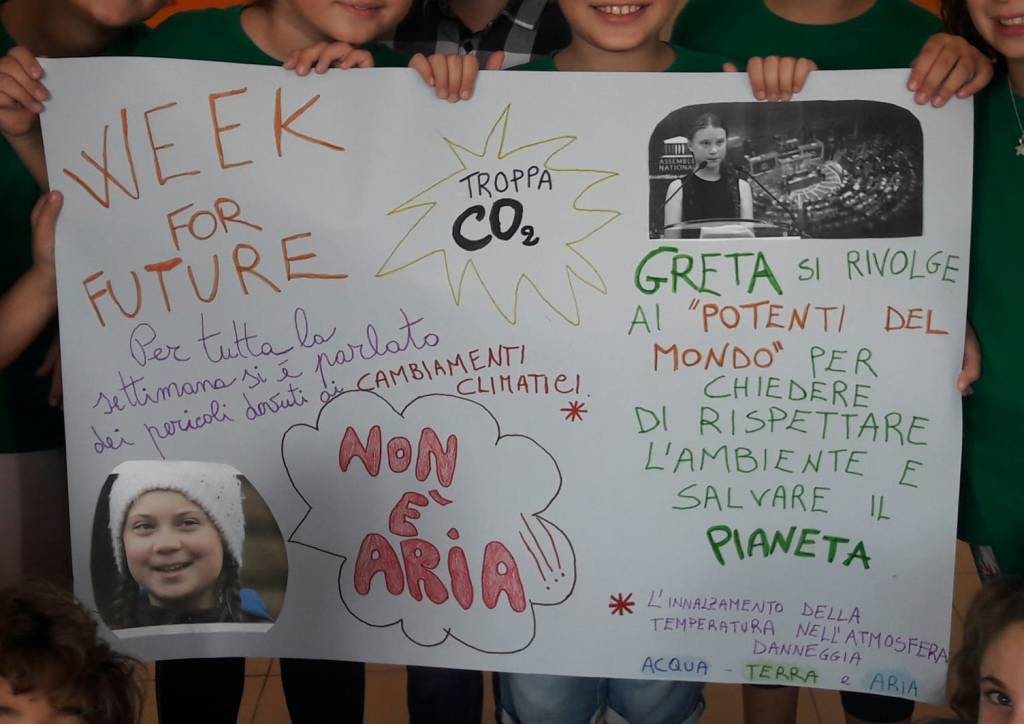 WEEK
FOR
FUTURE
Per tutta la
settimana si è parlato
dei pericoli dovuti ai CAMBIAMENTI
CLIMATICI
*
TROPPA
CO2
NON
È
ARIA
!!!
ASSEMBLÉE
NATIONALE
GRETA SI RIVOLGE
AI "POTENTI DEL
MONDO" PER
CHIEDERE
DI RISPETTARE
L'AMBIENTE E
SALVARE IL
PIANETA
* L'INNALZAMENTO DELLA
TEMPERATURA NELL'ATMOSFERA
DANNEGGIA
ACQUA - TERRA e ARIA